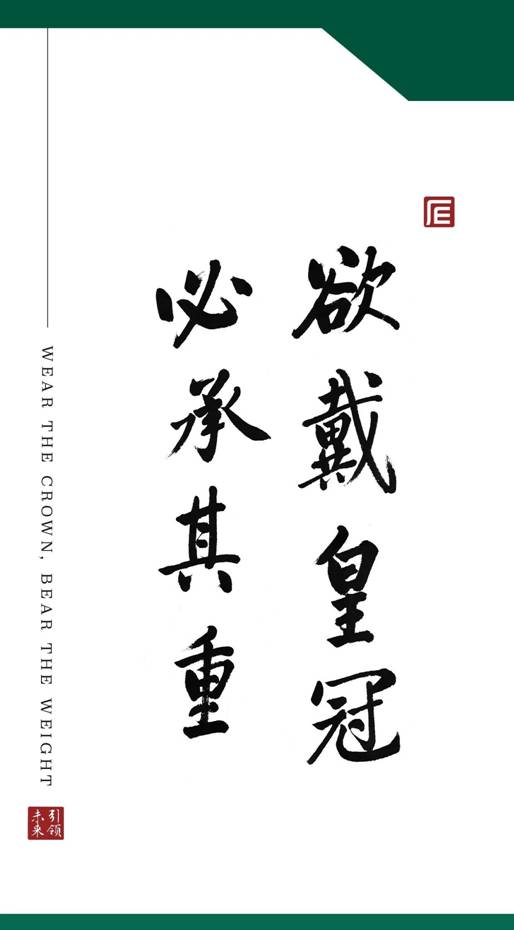 欲戴皇冠
必承其重
WEAR THE CROWN, BEAR THE WEIGHT
引领
未来